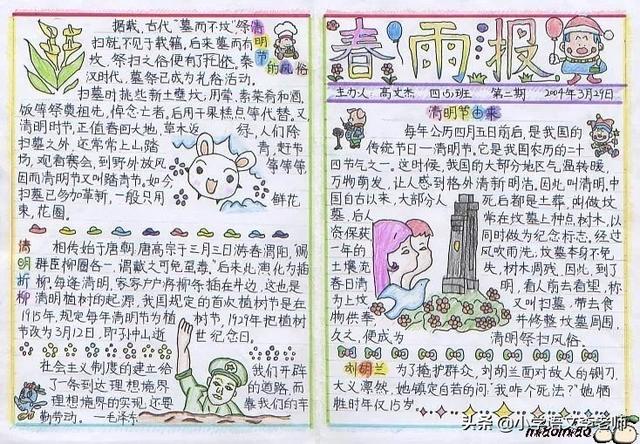 据载，古代"墓而不坟"祭
扫就不见于载籍，后来墓而有
坟，祭扫之俗便有了依托。秦
汉时代，墓祭已成为礼俗活动。
清明节的风俗
扫墓时挑些新土壅坟，用荤、素菜肴和酒、
饭等祭奠祖先，悼念亡者，后用干果糕点等代替。又
清明时节，正值春回大地，草木返绿，人们除
扫墓之外，还常常上山踏青，赶节
场，观看赛会，到野外放风筝等等，
因而清明节又叫踏青节。如今
扫墓已多加革新，一般只用鲜花
束，花圈。
清明折柳
相传始于唐朝，唐高宗于三月三日游春渭阳，"赐
群臣柳圈各一，谓戴之可免虿毒。"后来此演化为插
柳，每逢清明，家家户户将柳条插在井边，这也是
清明植树的起源，我国规定的首次植树节是在
1915年，规定每年清明节为植树节，1929年把植树
节改为3月12日，即孙中山逝世纪念日。
社会主义制度的建立给我们开辟
了一条到达理想境界的道路，而
理想境界的实现，还要靠我们的辛
勤劳动。—毛泽东
春雨报
主办人：高文杰 四(5)班 第二期 2004年3月29日
清明节由来
每年公历四月五日前后，是我国的
传统节日—清明节，它是我国农历的二十
四节气之一。这时候，我国的大部分地区气温转暖，
万物萌发，让人感到格外清新明洁，因此叫清明，中
国自古以来，大部分人死后都是土葬，叫做坟
墓。后人常在坟墓上种点树木，以
资保来同时做为纪念标志，经过
一年的风吹雨洗，坟墓本身不免
土壤流失，树木凋残。因此，到了
春日清明，看人前去看望，称
为上坟，又叫扫墓，带去食
物供奉，并修整坟墓周围，
久之，便成为清明祭扫风俗。
刘胡兰
为了掩护群众，刘胡兰面对敌人的铡刀，
大义凛然，她镇定自若的问"我咋个死法？"她牺
牲时年仅15岁。
头条 @小学语文李老师